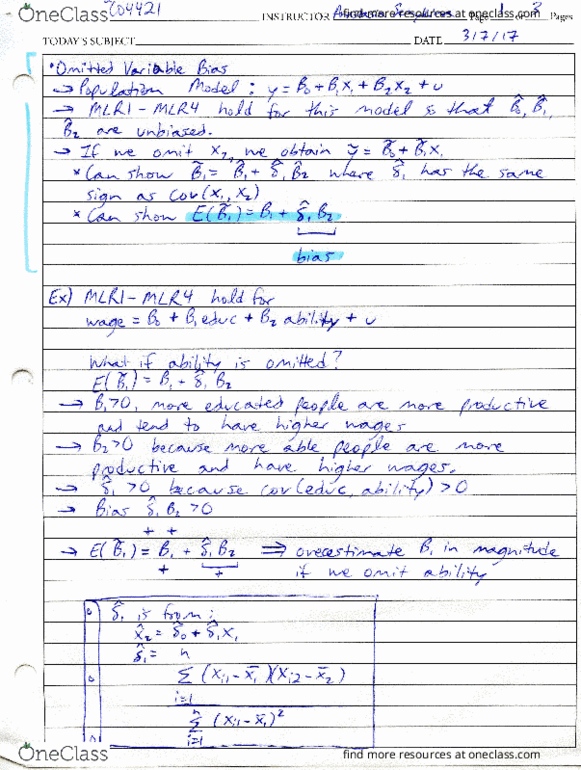 OneClass
INSTRUCTOR find more resources at oneclass.com Page 1 of 8 Pages
TODAY'S SUBJECT DATE 3/7/17
*Omitted Variable Bias
→ Population Model: y = B₀ + B₁x₁ + B₂x₂ + u
→ MLR1-MLR4 hold for this model so that B̂₀, B̂₁,
B̂₂ are unbiased.
→ If we omit x₂, we obtain ỹ = B̃₀ + B̃₁x₁
* Can show B̃₁ = B̂₁ + δ̂₁ B̂₂ where δ̂₁ has the same
sign as cov(x₁, x₂)
* Can show E(B̃₁) = B₁ + δ̂₁ B₂
bias
Ex) MLR1-MLR4 hold for
wage = B₀ + B₁educ + B₂ ability + u
What if ability is omitted?
E(B̃₁) = B₁ + δ̂₁ B₂
→ B₁>0, more educated people are more productive
and tend to have higher wages
→ B₂>0 because more able people are more
productive and have higher wages.
→ δ̂₁ >0 because cov(educ, ability) >0
→ Bias δ̂₁ B₂ >0
+ +
→ E(B̃₁) = B₁ + δ̂₁ B₂ ⇒ overestimate B₁ in magnitude
+ + if we omit ability
δ̂₁ is from:
x̂₂ = δ̂₀ + δ̂₁x₁
δ̂₁ = n
Σ (xᵢ₁ - x̄₁)(xᵢ₂ - x̄₂)
i=1
n
Σ (xᵢ₁ - x̄₁)²
i=1
OneClass find more resources at oneclass.com